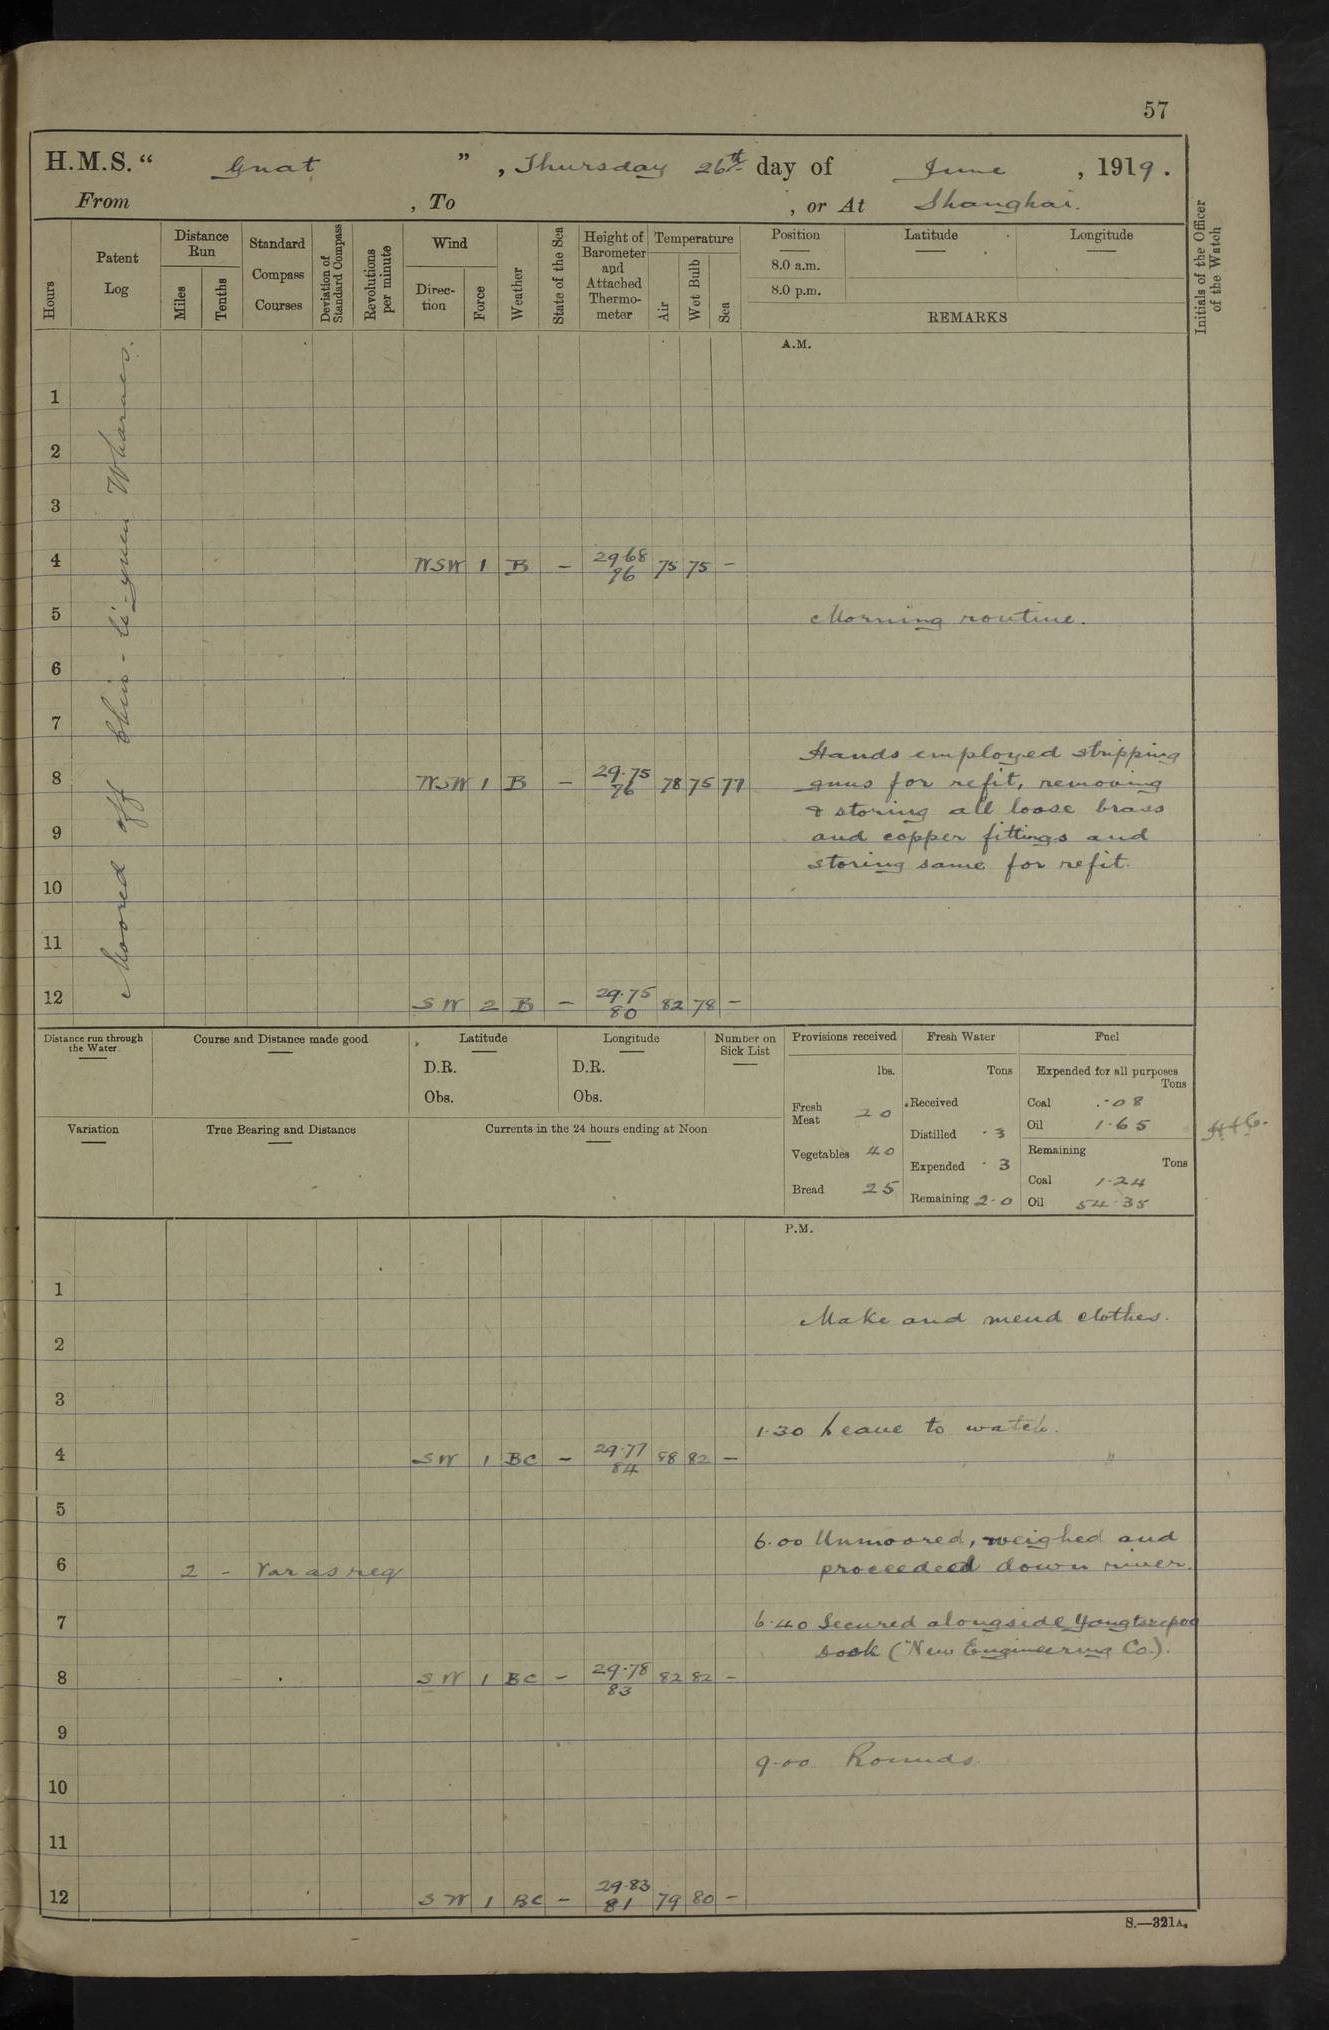 57
H.M.S. “ Gnat ” , Thursday 26th day of June , 1919.
From , To , or At Shanghai.
Hours
Patent Log
Distance Run
Miles
Tenths
Standard Compass Courses
Deviation of Standard Compass
Revolutions per minute
Wind
Direction
Force
Weather
State of the Sea
Height of Barometer and Attached Thermometer
Temperature
Air
Wet Bulb
Sea
Position
8.0 a.m.
8.0 p.m.
Latitude
Longitude
REMARKS
Initials of the Officer of the Watch
A.M.
Moored off
1
2
3
4 WSW 1 B – 29.68 75 75 –
5 Morning routine.
6
7
Hands employed stripping
8 WSW 1 B – 29.75 76 78 75 77 guns for refit, removing
& storing all loose brass
9 and copper fittings and
storing same for refit.
10
11
12 SW 2 B – 29.75 80 82 78 –
Distance run through the Water
Course and Distance made good
Latitude
D.R.
Obs.
Longitude
D.R.
Obs.
Number on Sick List
Variation
True Bearing and Distance
Currents in the 24 hours ending at Noon
Provisions received
lbs.
Fresh Meat 20
Vegetables 40
Bread 25
Fresh Water
Tons
Received
Distilled ·3
Expended ·3
Remaining 2.0
Fuel
Expended for all purposes
Tons
Coal .08
Oil 1.65
Remaining
Tons
Coal 1.24
Oil 54.35
P.M.
1
Make and mend clothes.
2
3
1.30 Leave to watch.
4 SW 1 BC – 29.77 84 88 82 – "
5
6.00 Unmoored, weighed and
6 2 – Var as req proceeded down river.
7 6.40 Secured alongside Yangtszepoo
Dock ("New Engineering Co.).
8 SW 1 BC – 29.78 83 82 82 –
9
9.00 Rounds.
10
11
12 SW 1 BC – 29.83 81 79 80 –
S.—321A.